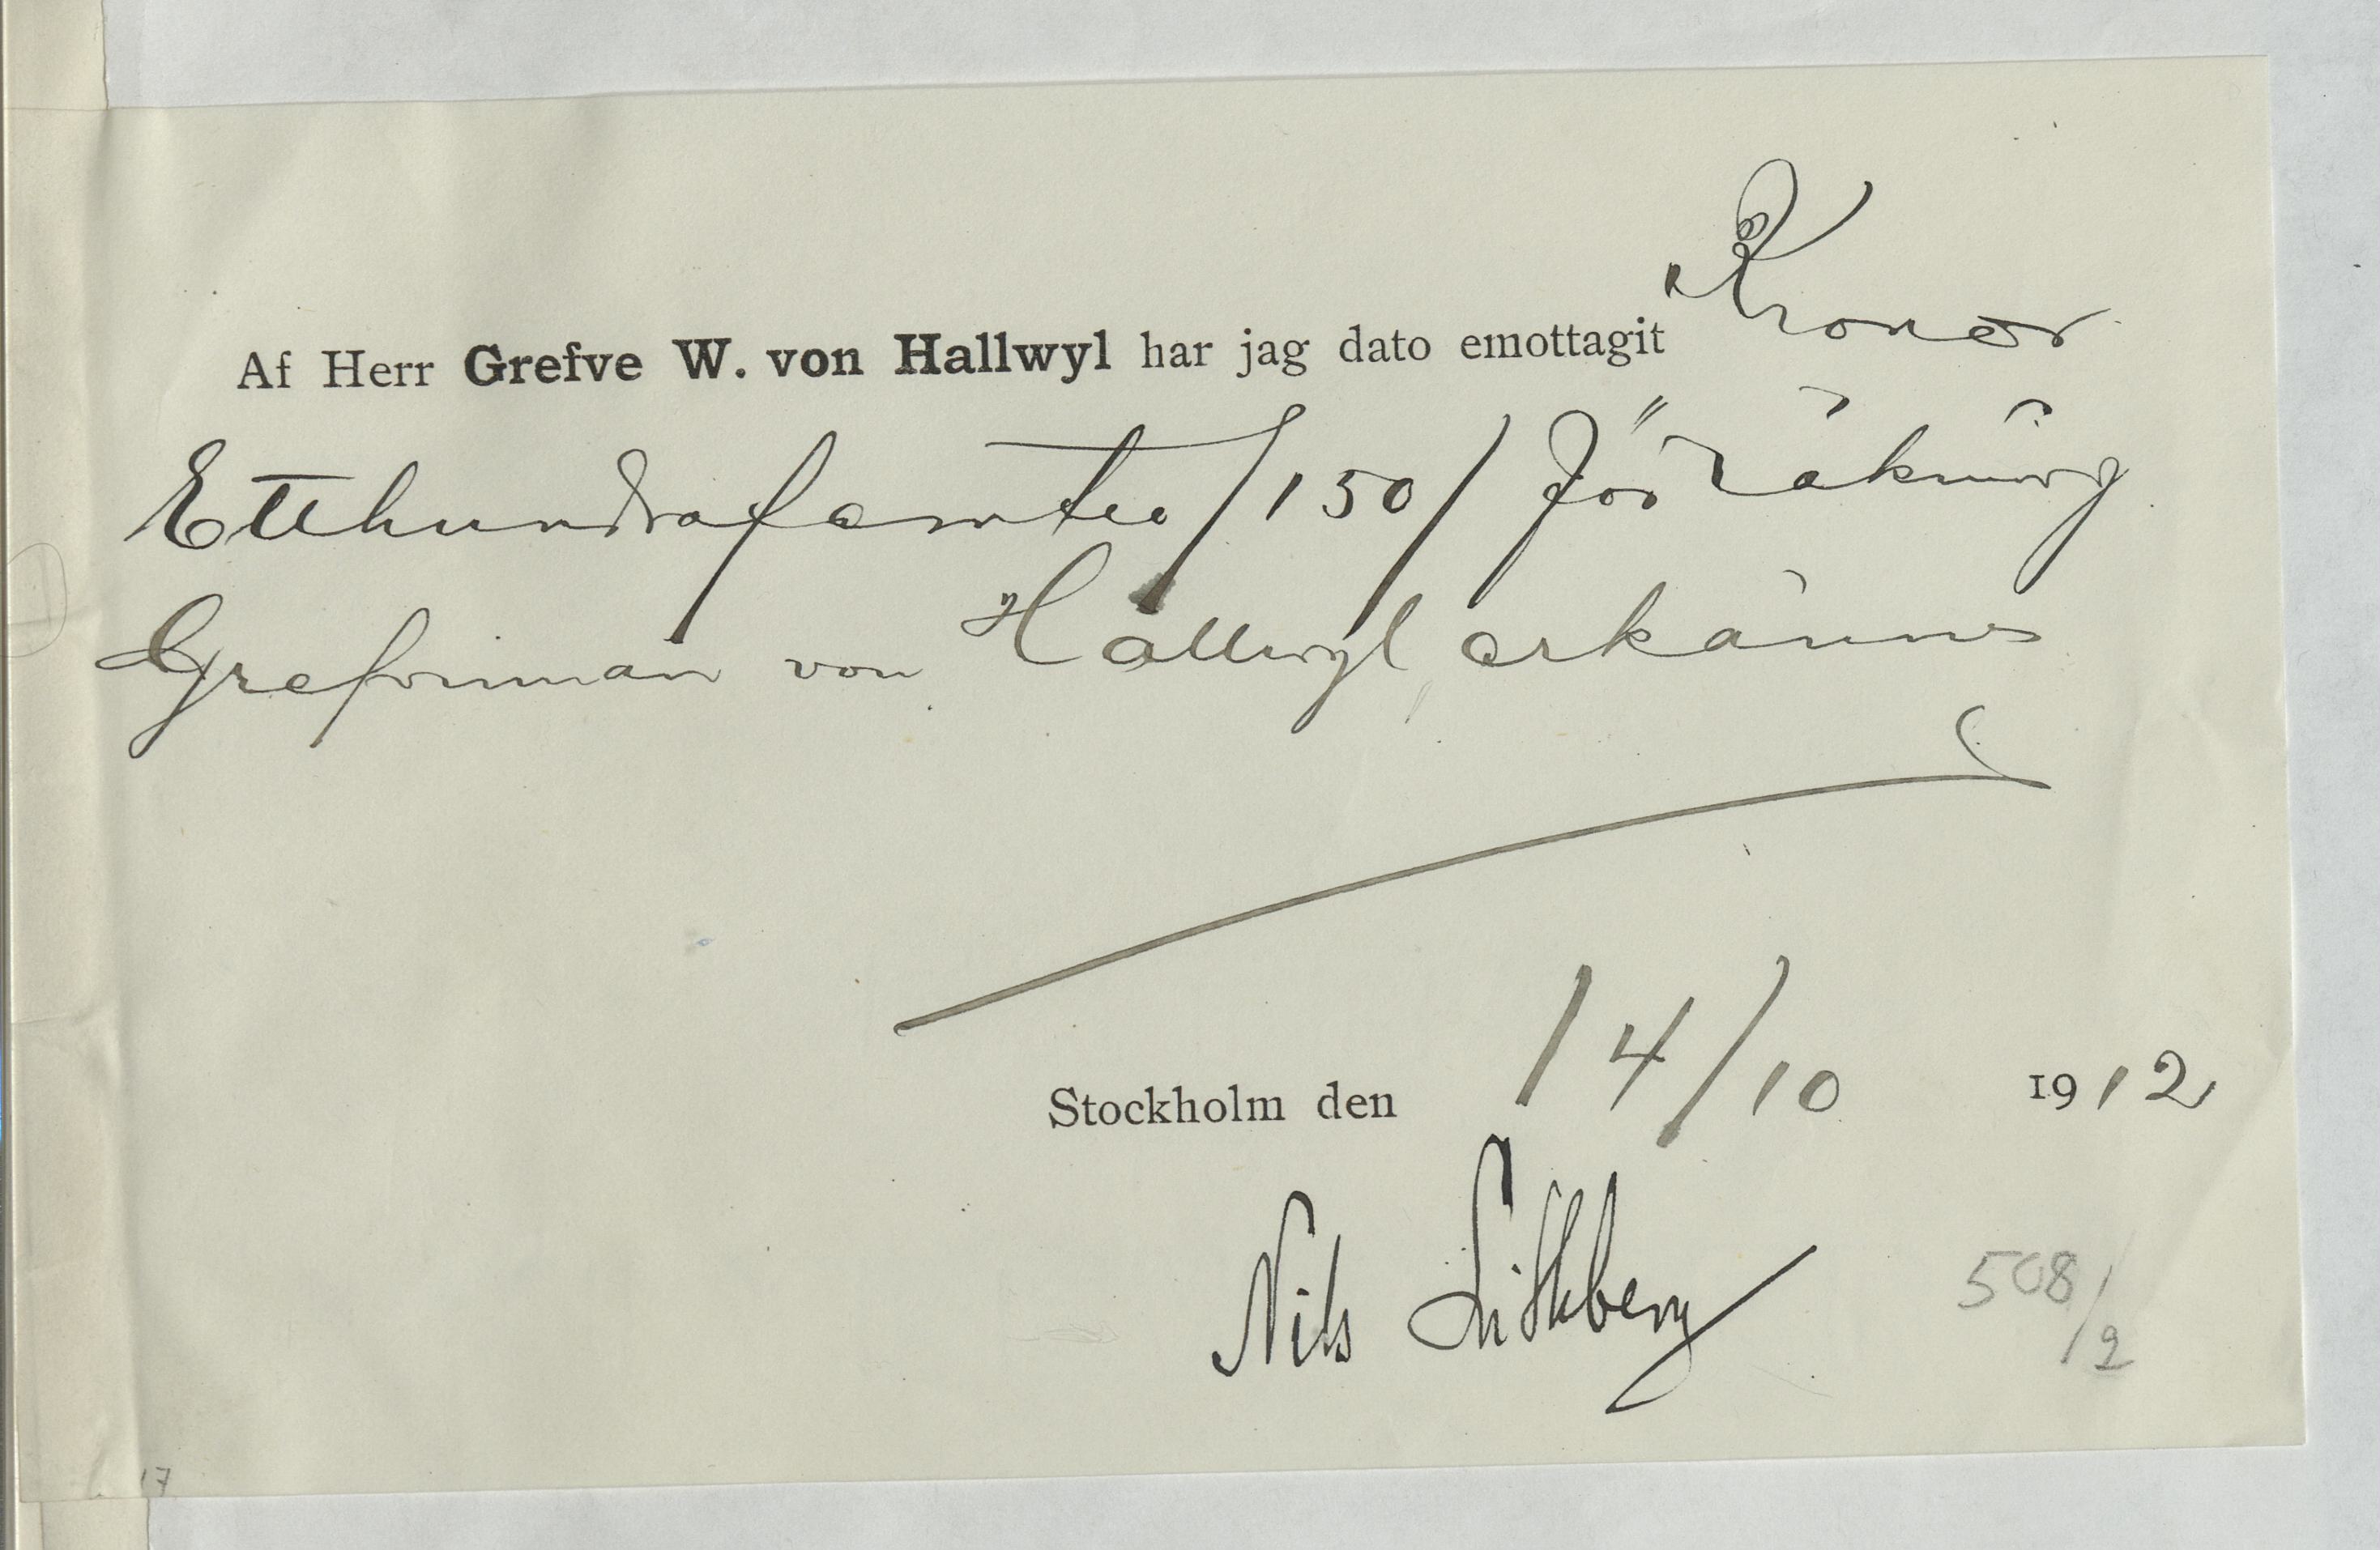 Af Herr Grefve W. von Hallwyl har jag dato emottagit Kronor
Etthundrafemtio /150/ för räkning
Grefvinnan von Hallwyl, erkännes
Stockholm den 14/10 1912
Nils Lithberg
508/2
17